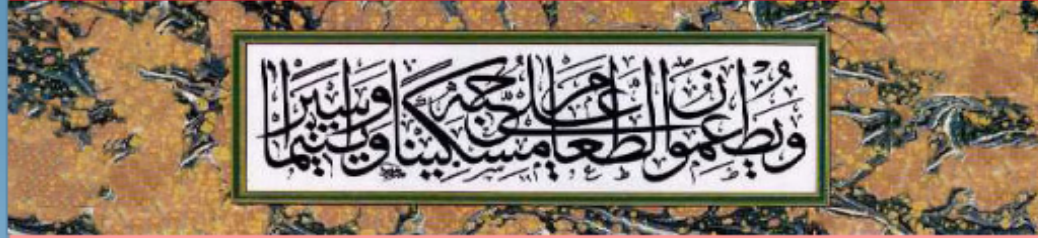 وَيُطْعِمُونَ الطَّعَامَ عَلَى حُبِّهِ مِسْكِينًا وَيَتِيمًا وَأَسِيرًا